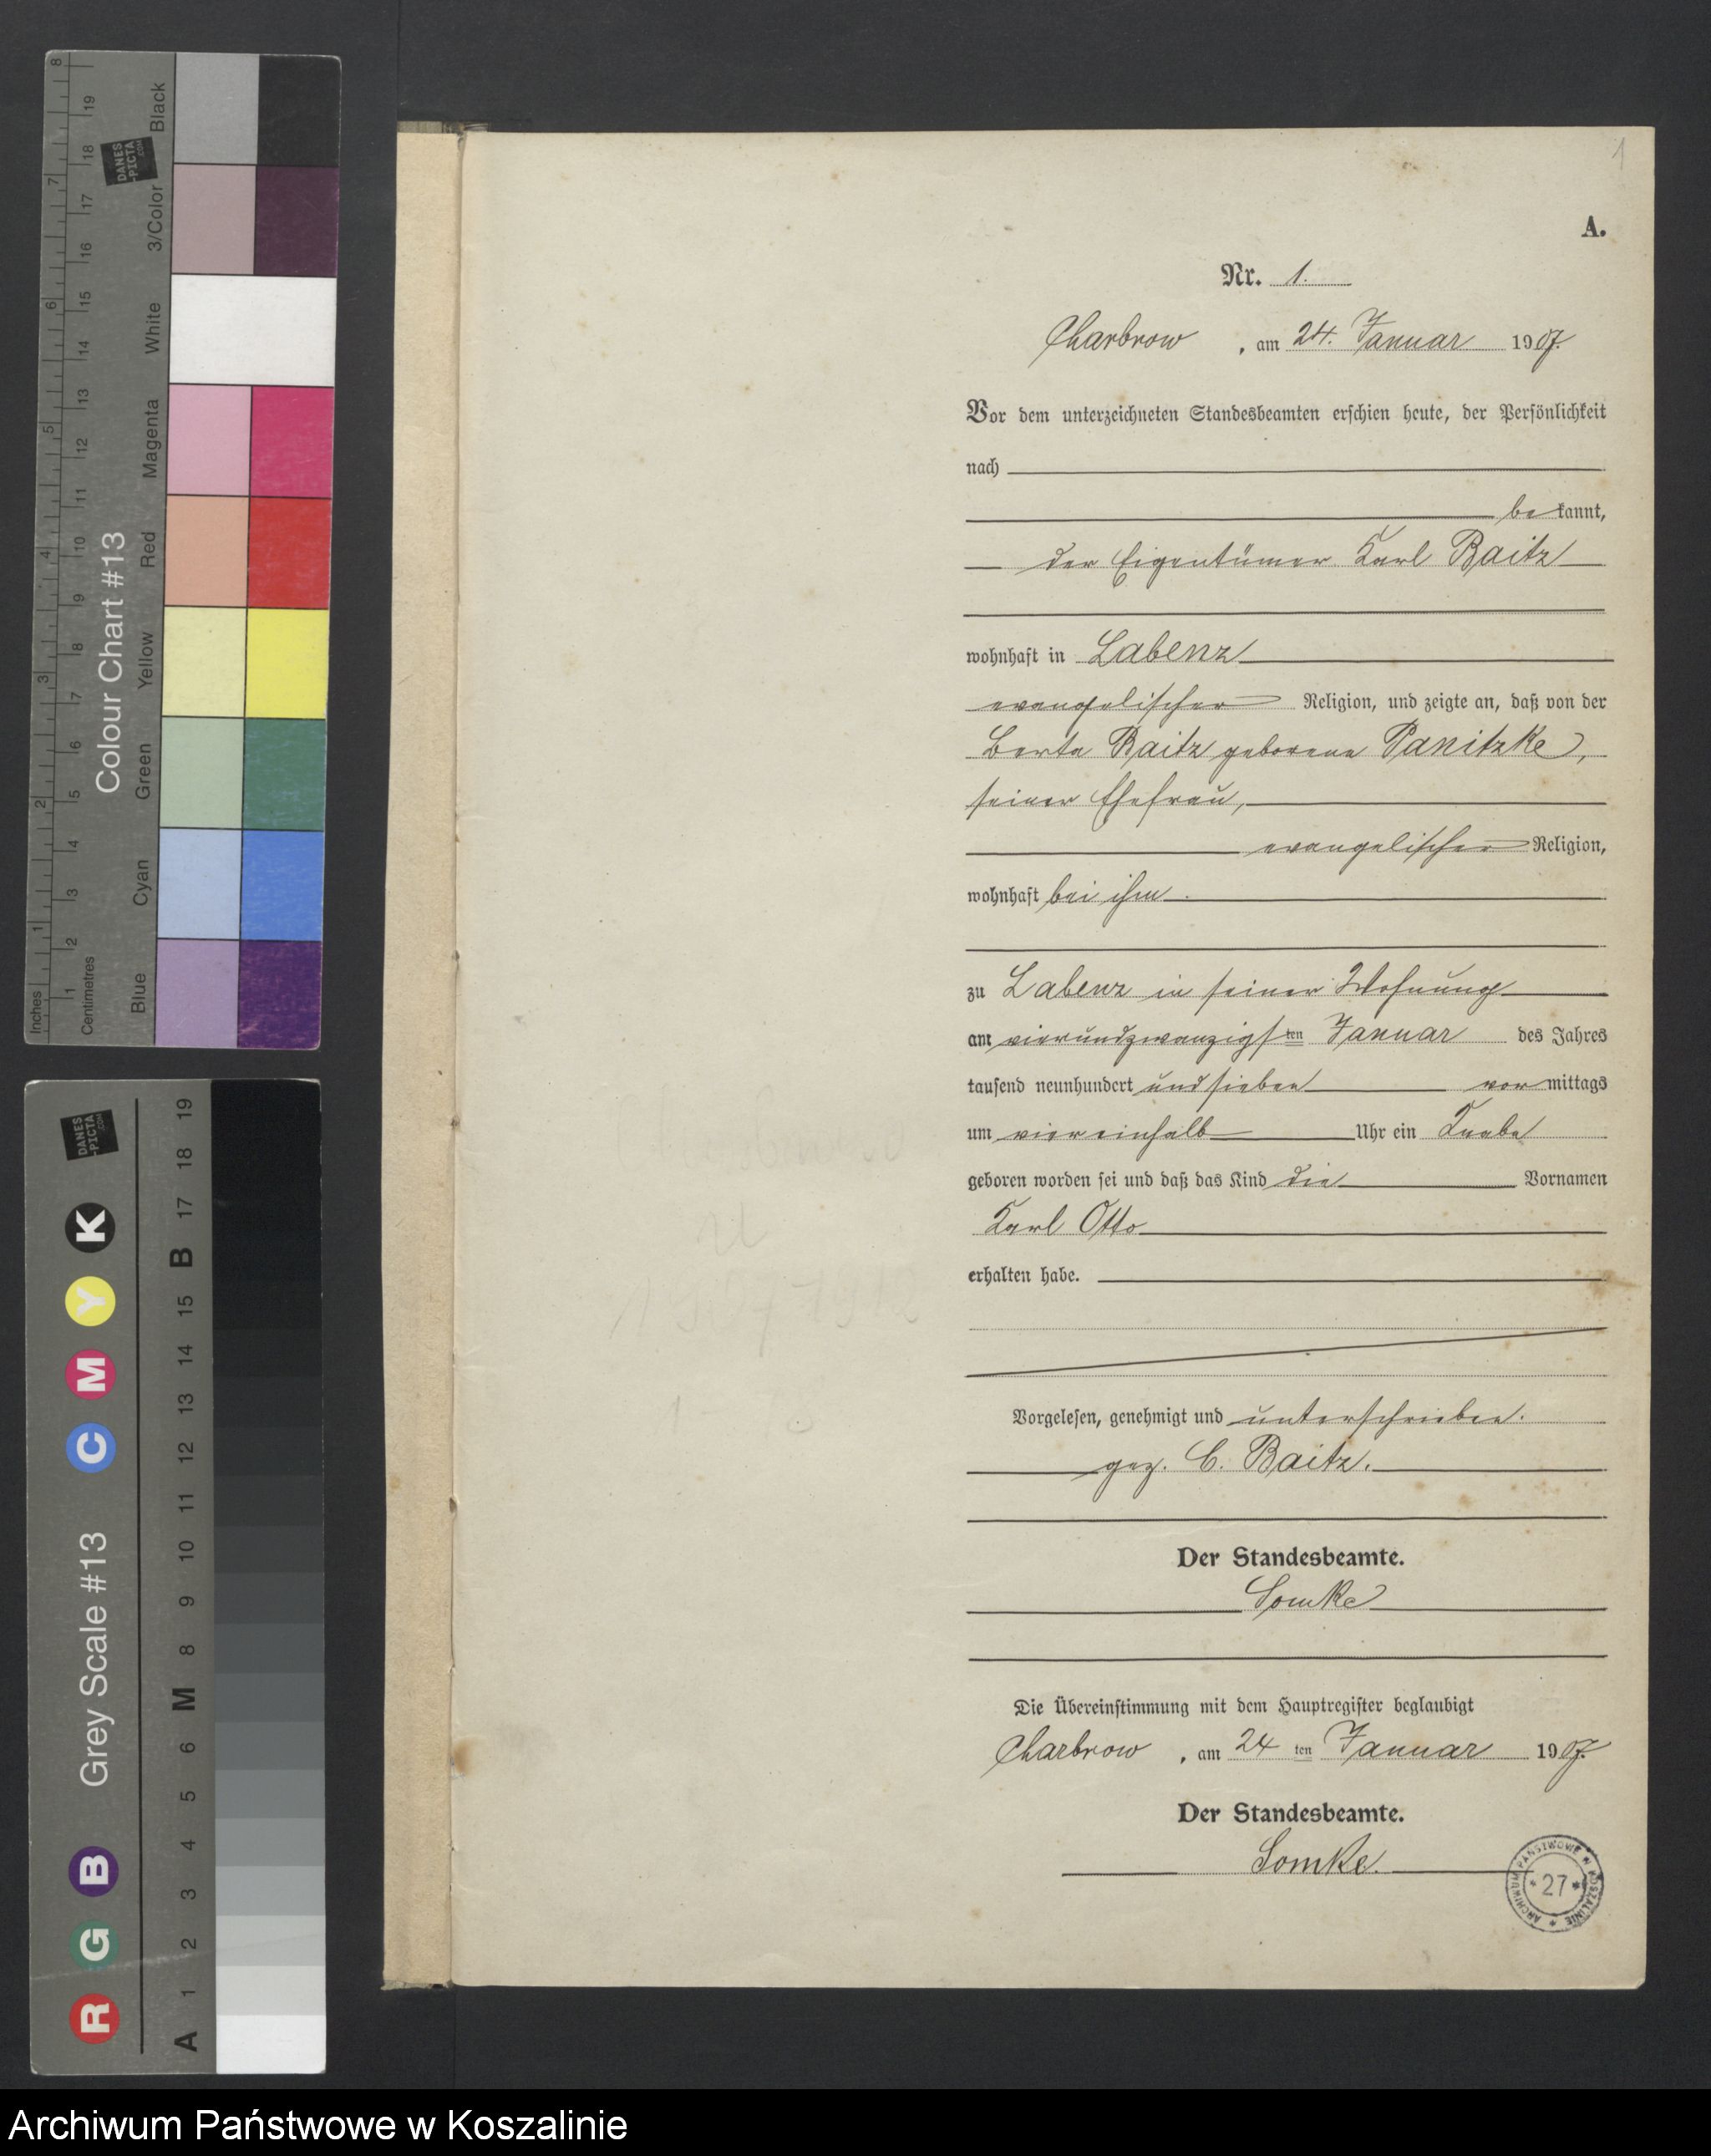 1
A.
Nr. 1.
Charbrow, am 24. Januar 1907.
Vor dem unterzeichneten Standesbeamten erschien heute, der Persönlichkeit
nach
bekannt,
der Eigentümer Karl Baitz
wohnhaft in Labenz
evangelischer Religion, und zeigte an, daß von der
Berta Baitz geborene Panitzke,
seiner Ehefrau,
evangelischer Religion,
wohnhaft bei ihm.
zu Labenz in seiner Wohnung
am vierundzwanzigsten Januar des Jahres
tausend neunhundert und sieben vormittags
um vier einhalb Uhr ein Knabe
geboren worden sei und daß das Kind die Vornamen
Karl Otto
erhalten habe.
Vorgelesen, genehmigt und unterschrieben.
gez. C. Baitz.
Der Standesbeamte.
Somke
Die Übereinstimmung mit dem Hauptregister beglaubigt
Charbrow, am 24 ten Januar 1907.
Der Standesbeamte.
Somke.
ARCHIWUM PAŃSTWOWE W KOSZALINIE
* 27 *
Colour Chart #13
Blue Cyan Green Yellow Red Magenta White 3/Color Black
Inches 1 2 3 4 5 6 7 8
Centimetres 1 2 3 4 5 6 7 8 9 10 11 12 13 14 15 16 17 18 19
DANES-PICTA.COM
Grey Scale #13
R G B C M Y K
A 1 2 3 4 5 6 M 8 9 10 11 12 13 14 15 B 17 18 19
DANES-PICTA.COM
Archiwum Państwowe w Koszalinie